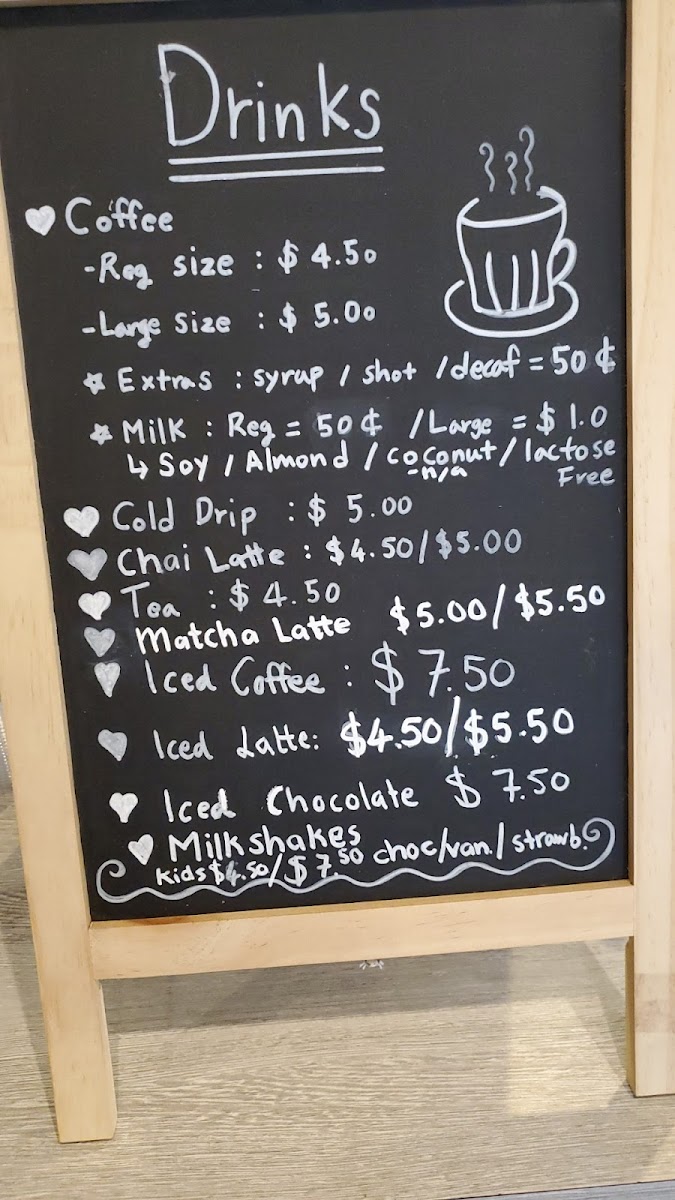 Drinks
Coffee
-Reg size : $ 4.50
-Large Size : $ 5.00
Extras : syrup / shot / decaf = 50 ¢
Milk : Reg = 50 ¢ / Large = $ 1.0
↳ Soy / Almond / coconut / lactose
-n/a Free
Cold Drip : $ 5.00
Chai Latte : $4.50/$5.00
Tea : $ 4.50
Matcha Latte $5.00/$5.50
Iced Coffee : $ 7.50
Iced Latte: $4.50/$5.50
Iced Chocolate $ 7.50
Milkshakes
kids $4.50/$7.50 choc/van/strawb.